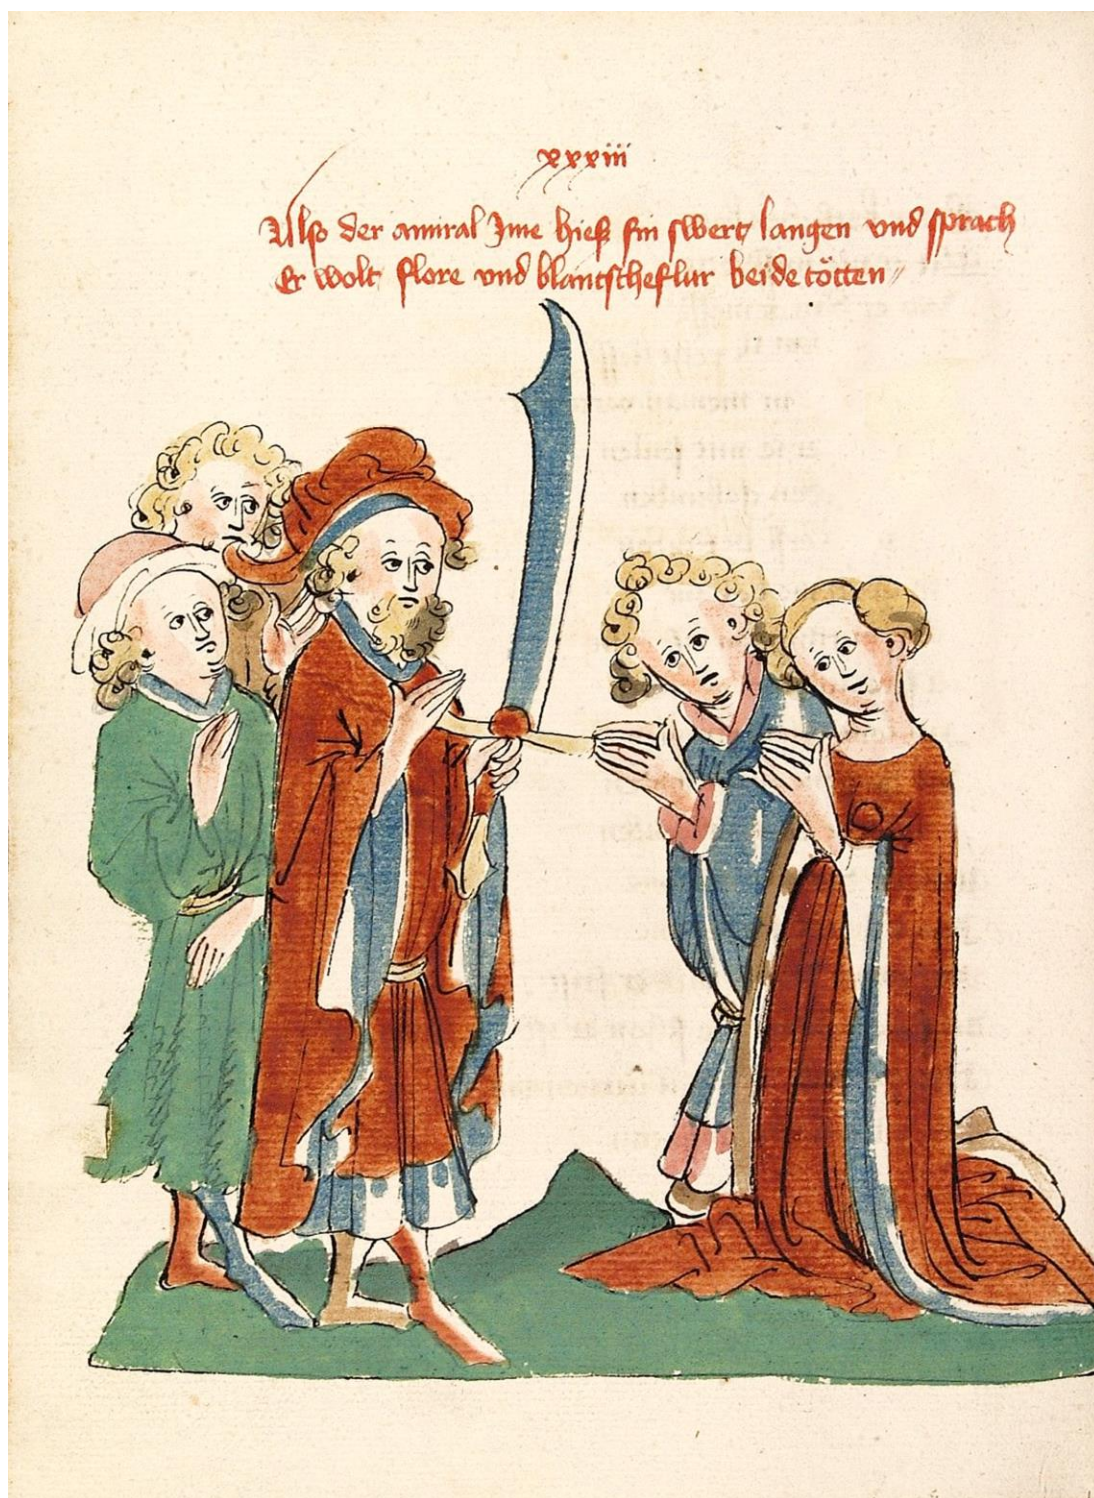 xxxiii
Also der amiral Ime hieß sin swert langen vnd sprach
Er wolt flore vnd blantscheflur beide tötten